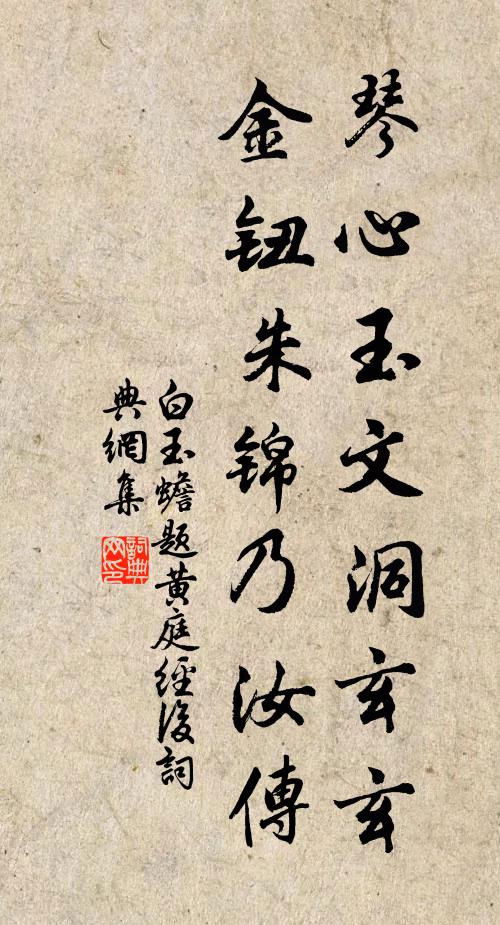 琴心玉文洞玄玄
金鈕朱錦乃汝傳
白玉蟾題黃庭經後詞
典網集
詞典
网印